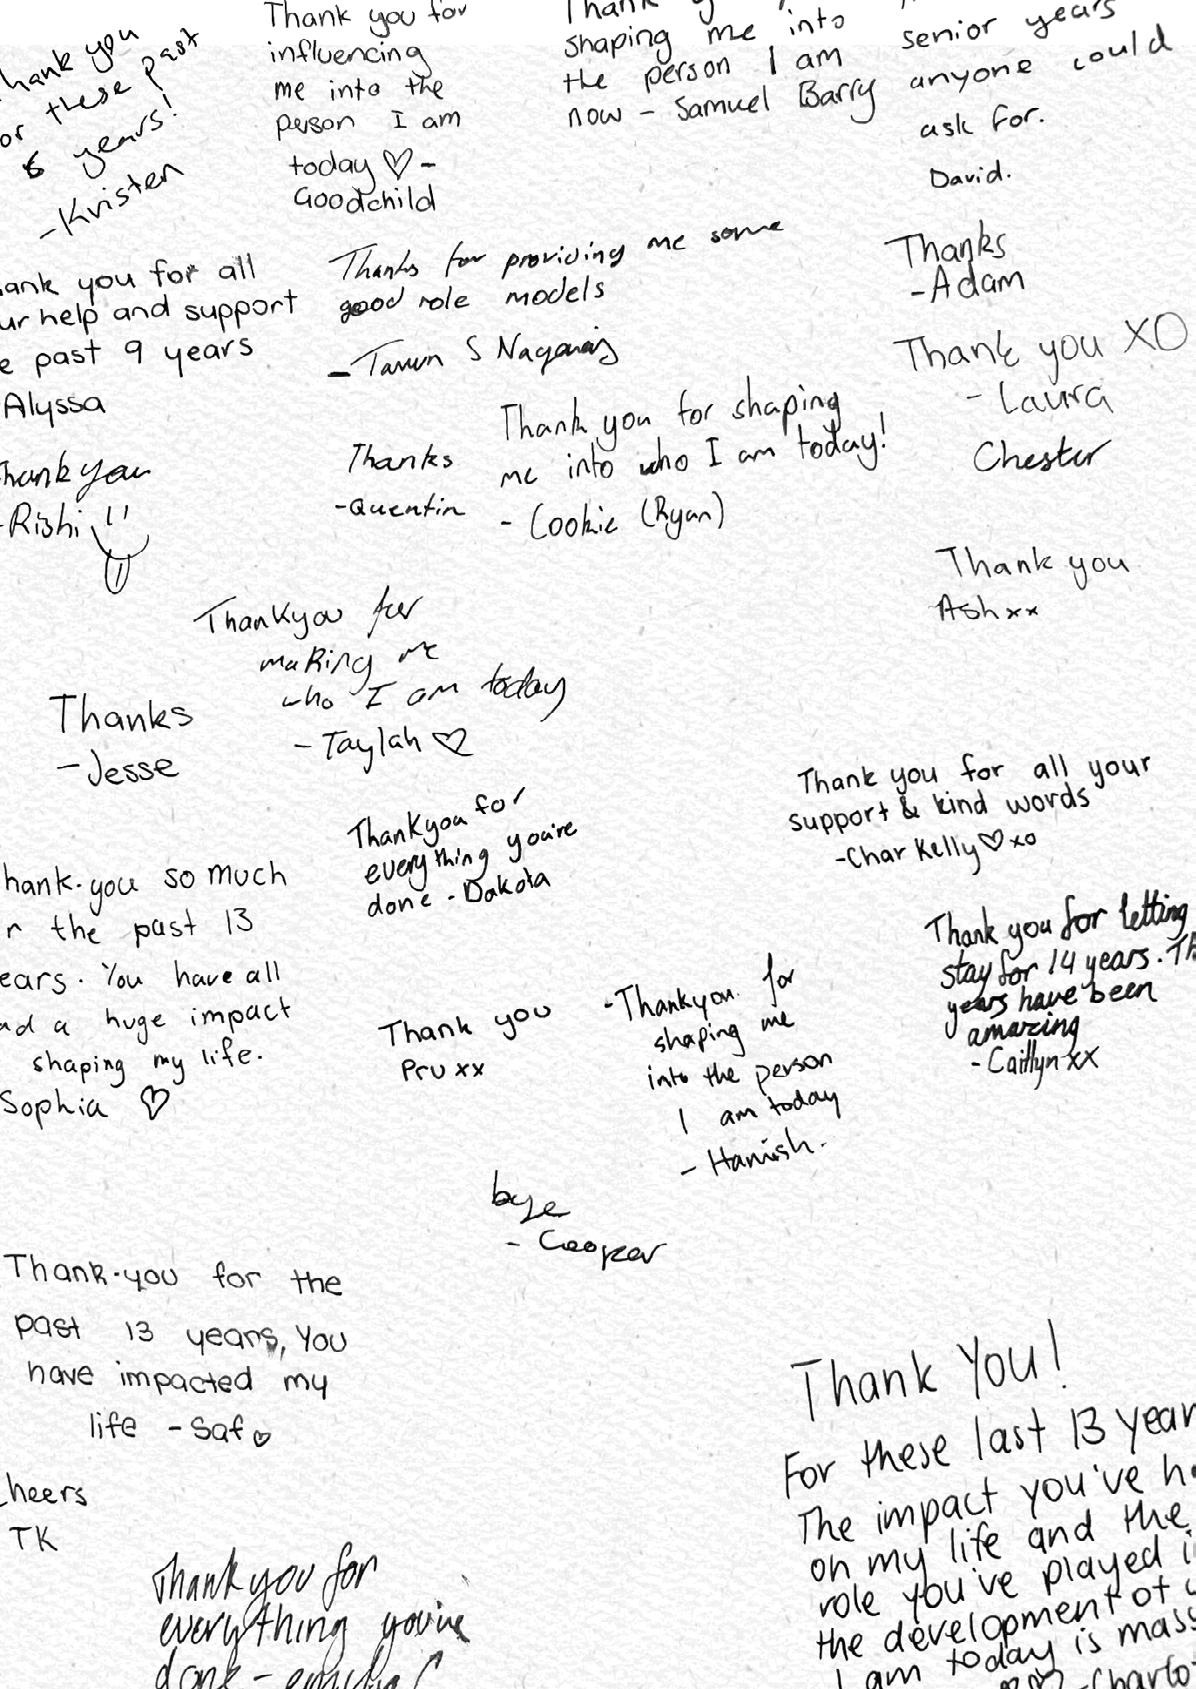 hank you
or these past
6 years!
-Kristen
Thank you for
influencing
me into the
person I am
today ♡ -
Goodchild
shaping me into
the person I am
now - Samuel Barry
senior years
anyone could
ask for.
David.
ank you for all
ur help and support
e past 9 years
Alyssa
Thanks for providing me some
good role models
- S
Thanks
-Adam
Thank you XO
- Laura
Chester
hank you
-Rishi
Thanks
-Quentin
Thank you for shaping
me into who I am today!
- Cookie (Ryan)
Thank you
Ash xx
Thankyou for
making me
who I am today
- Taylah ♡
Thanks
-Jesse
Thankyou for
everything you're
done - Dakota
Thank you for all your
support & kind words
-Char Kelly ♡ xo
hank-you so much
r the past 13
ears. You have all
ad a huge impact
shaping my life.
Sophia ♡
Thank you
Pru xx
-Thankyou for
shaping me
into the person
I am today
- Hamish.
Thank you for letting
stay for 14 years. Th
years have been
amazing
- Caitlyn xx
bye
- Cooper
Thank-you for the
past 13 years, You
have impacted my
life - Saf ♡
heers
TK
Thank you for
everything you've
done -
Thank You!
For these last 13 year
The impact you've h
on my life and the
role you've played i
the development of
I am today is mass
♡♡ -Charlo